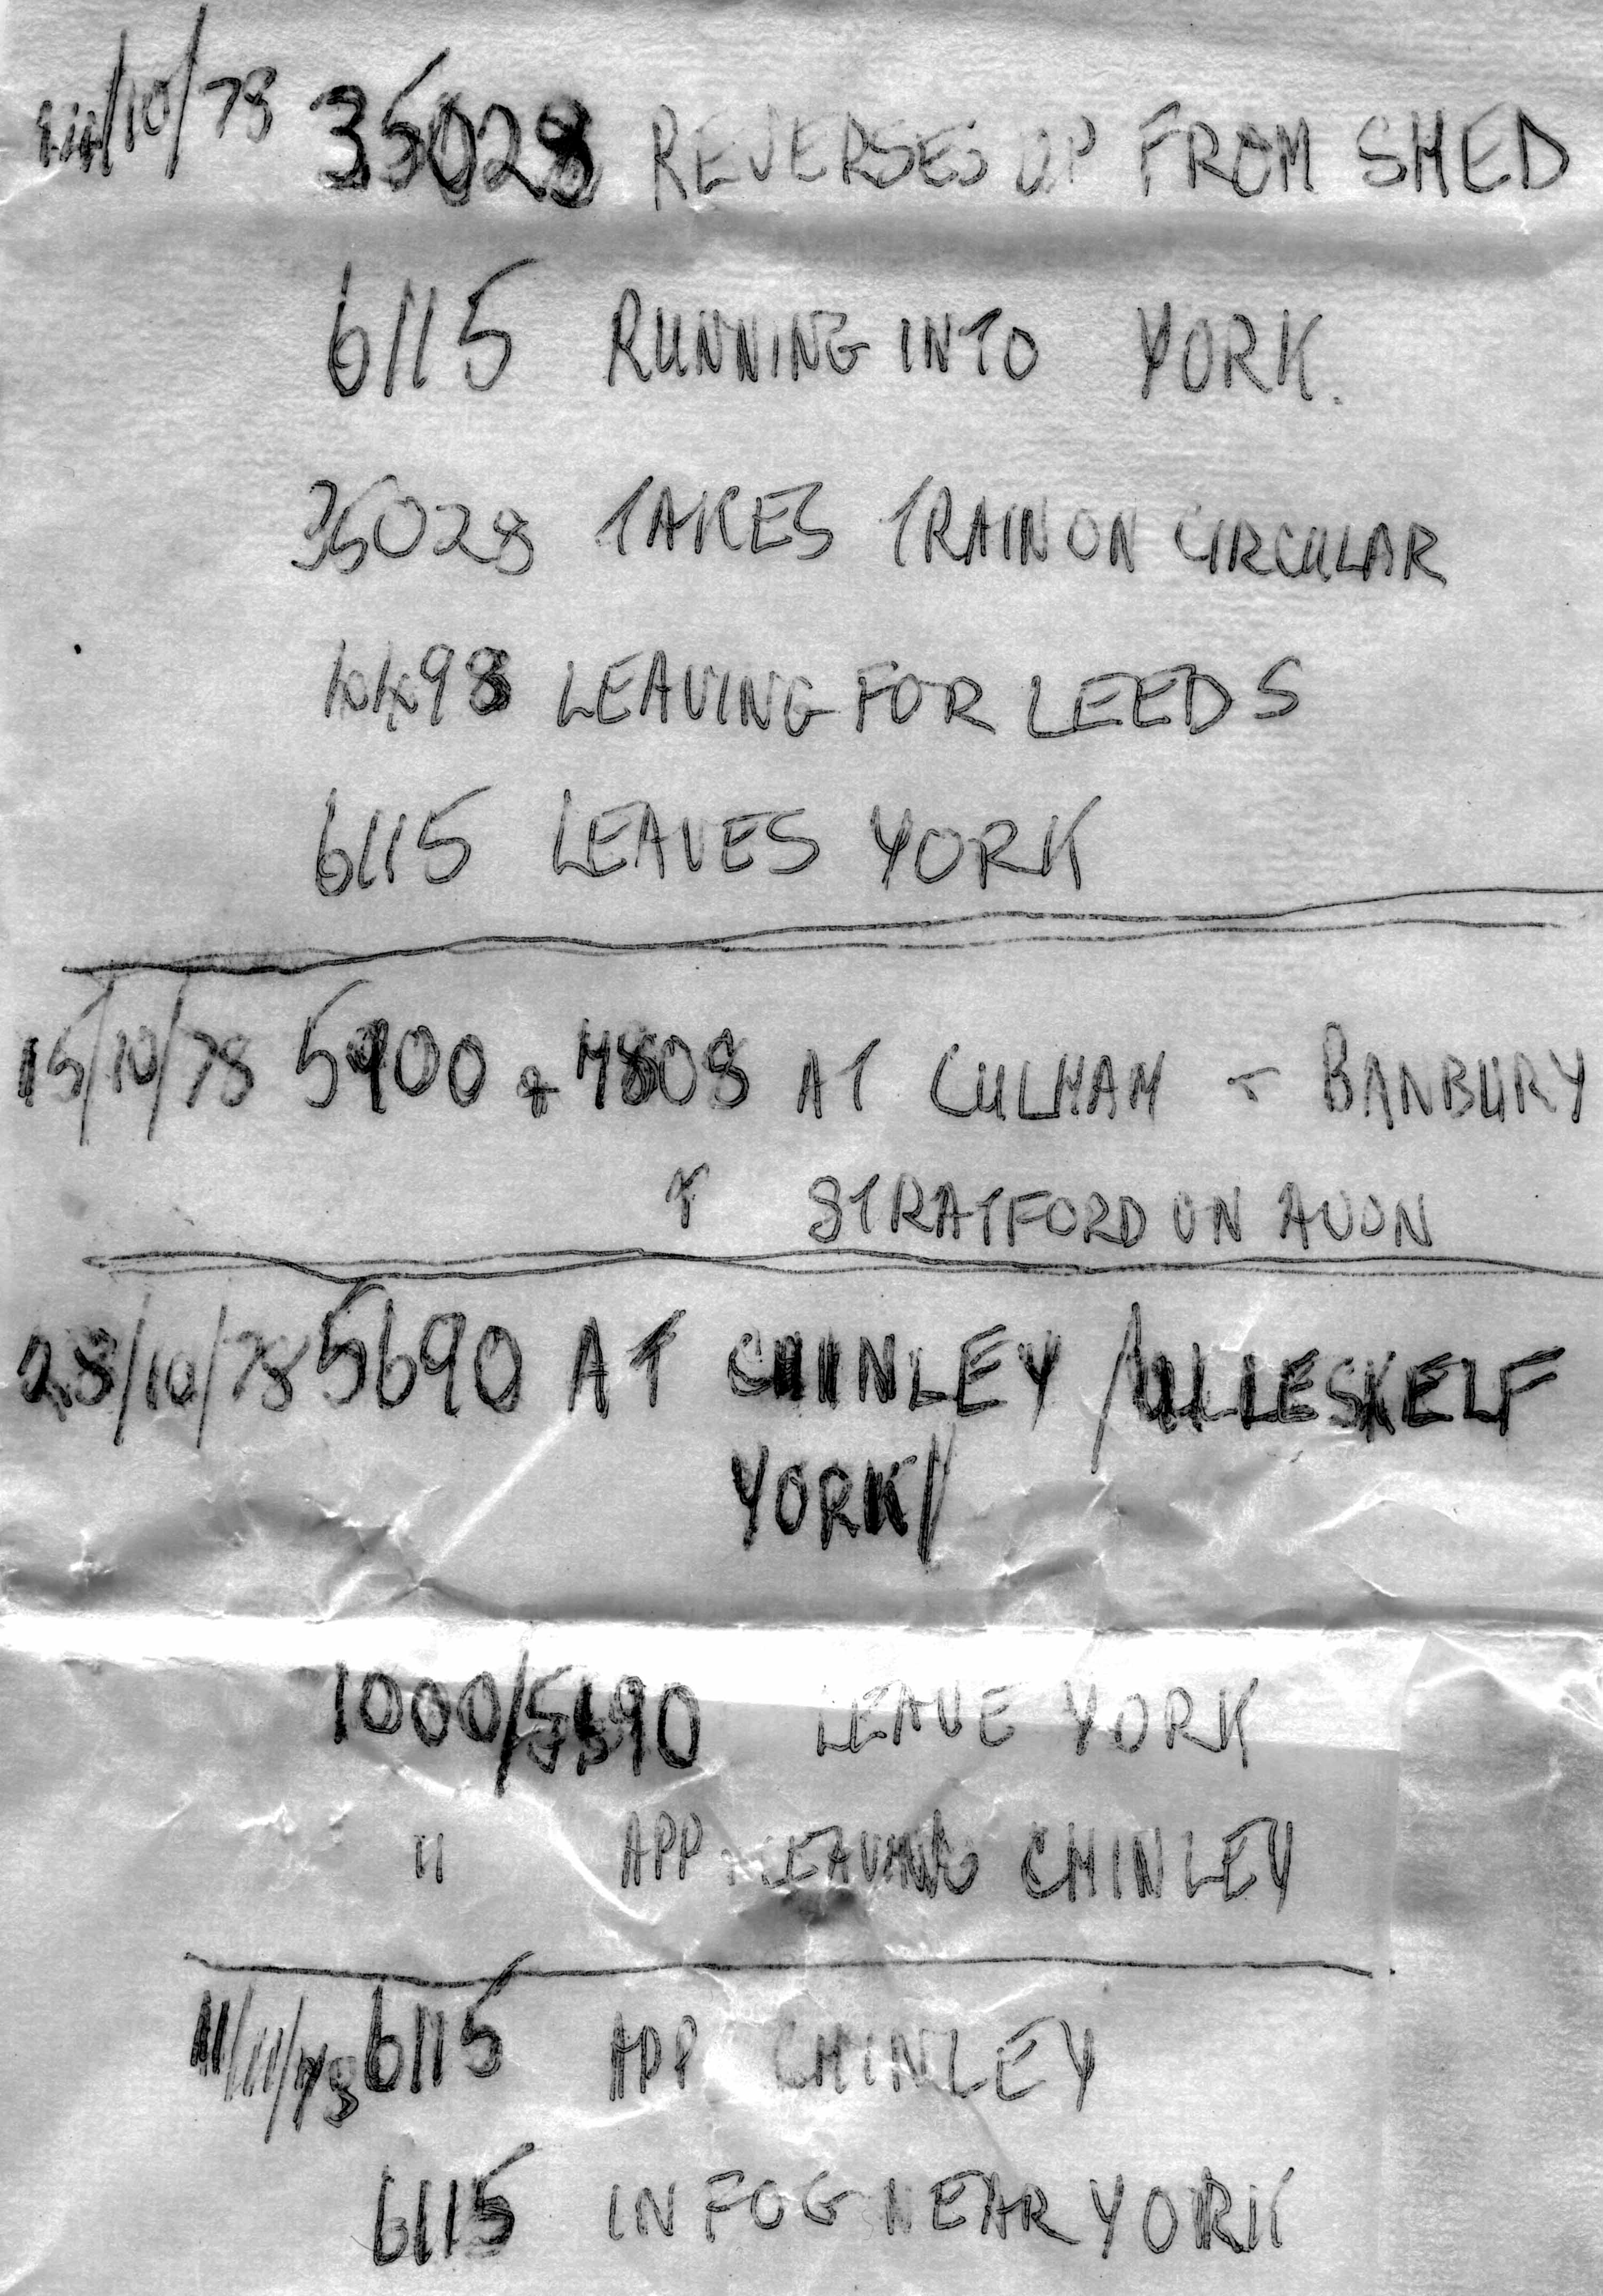 14/10/78 35028 REVERSES UP FROM SHED
6115 RUNNING INTO YORK.
35028 TAKES TRAIN ON CIRCULAR
4498 LEAVING FOR LEEDS
6115 LEAVES YORK
15/10/78 5900 + 7808 AT CULHAM + BANBURY
+ STRATFORD ON AVON
28/10/78 5690 AT CHINLEY / ULLESKELF
YORK//
1000/5690 LEAVE YORK
" APP LEAVING CHINLEY
11/11/78 6115 APP CHINLEY
6115 IN FOG NEAR YORK